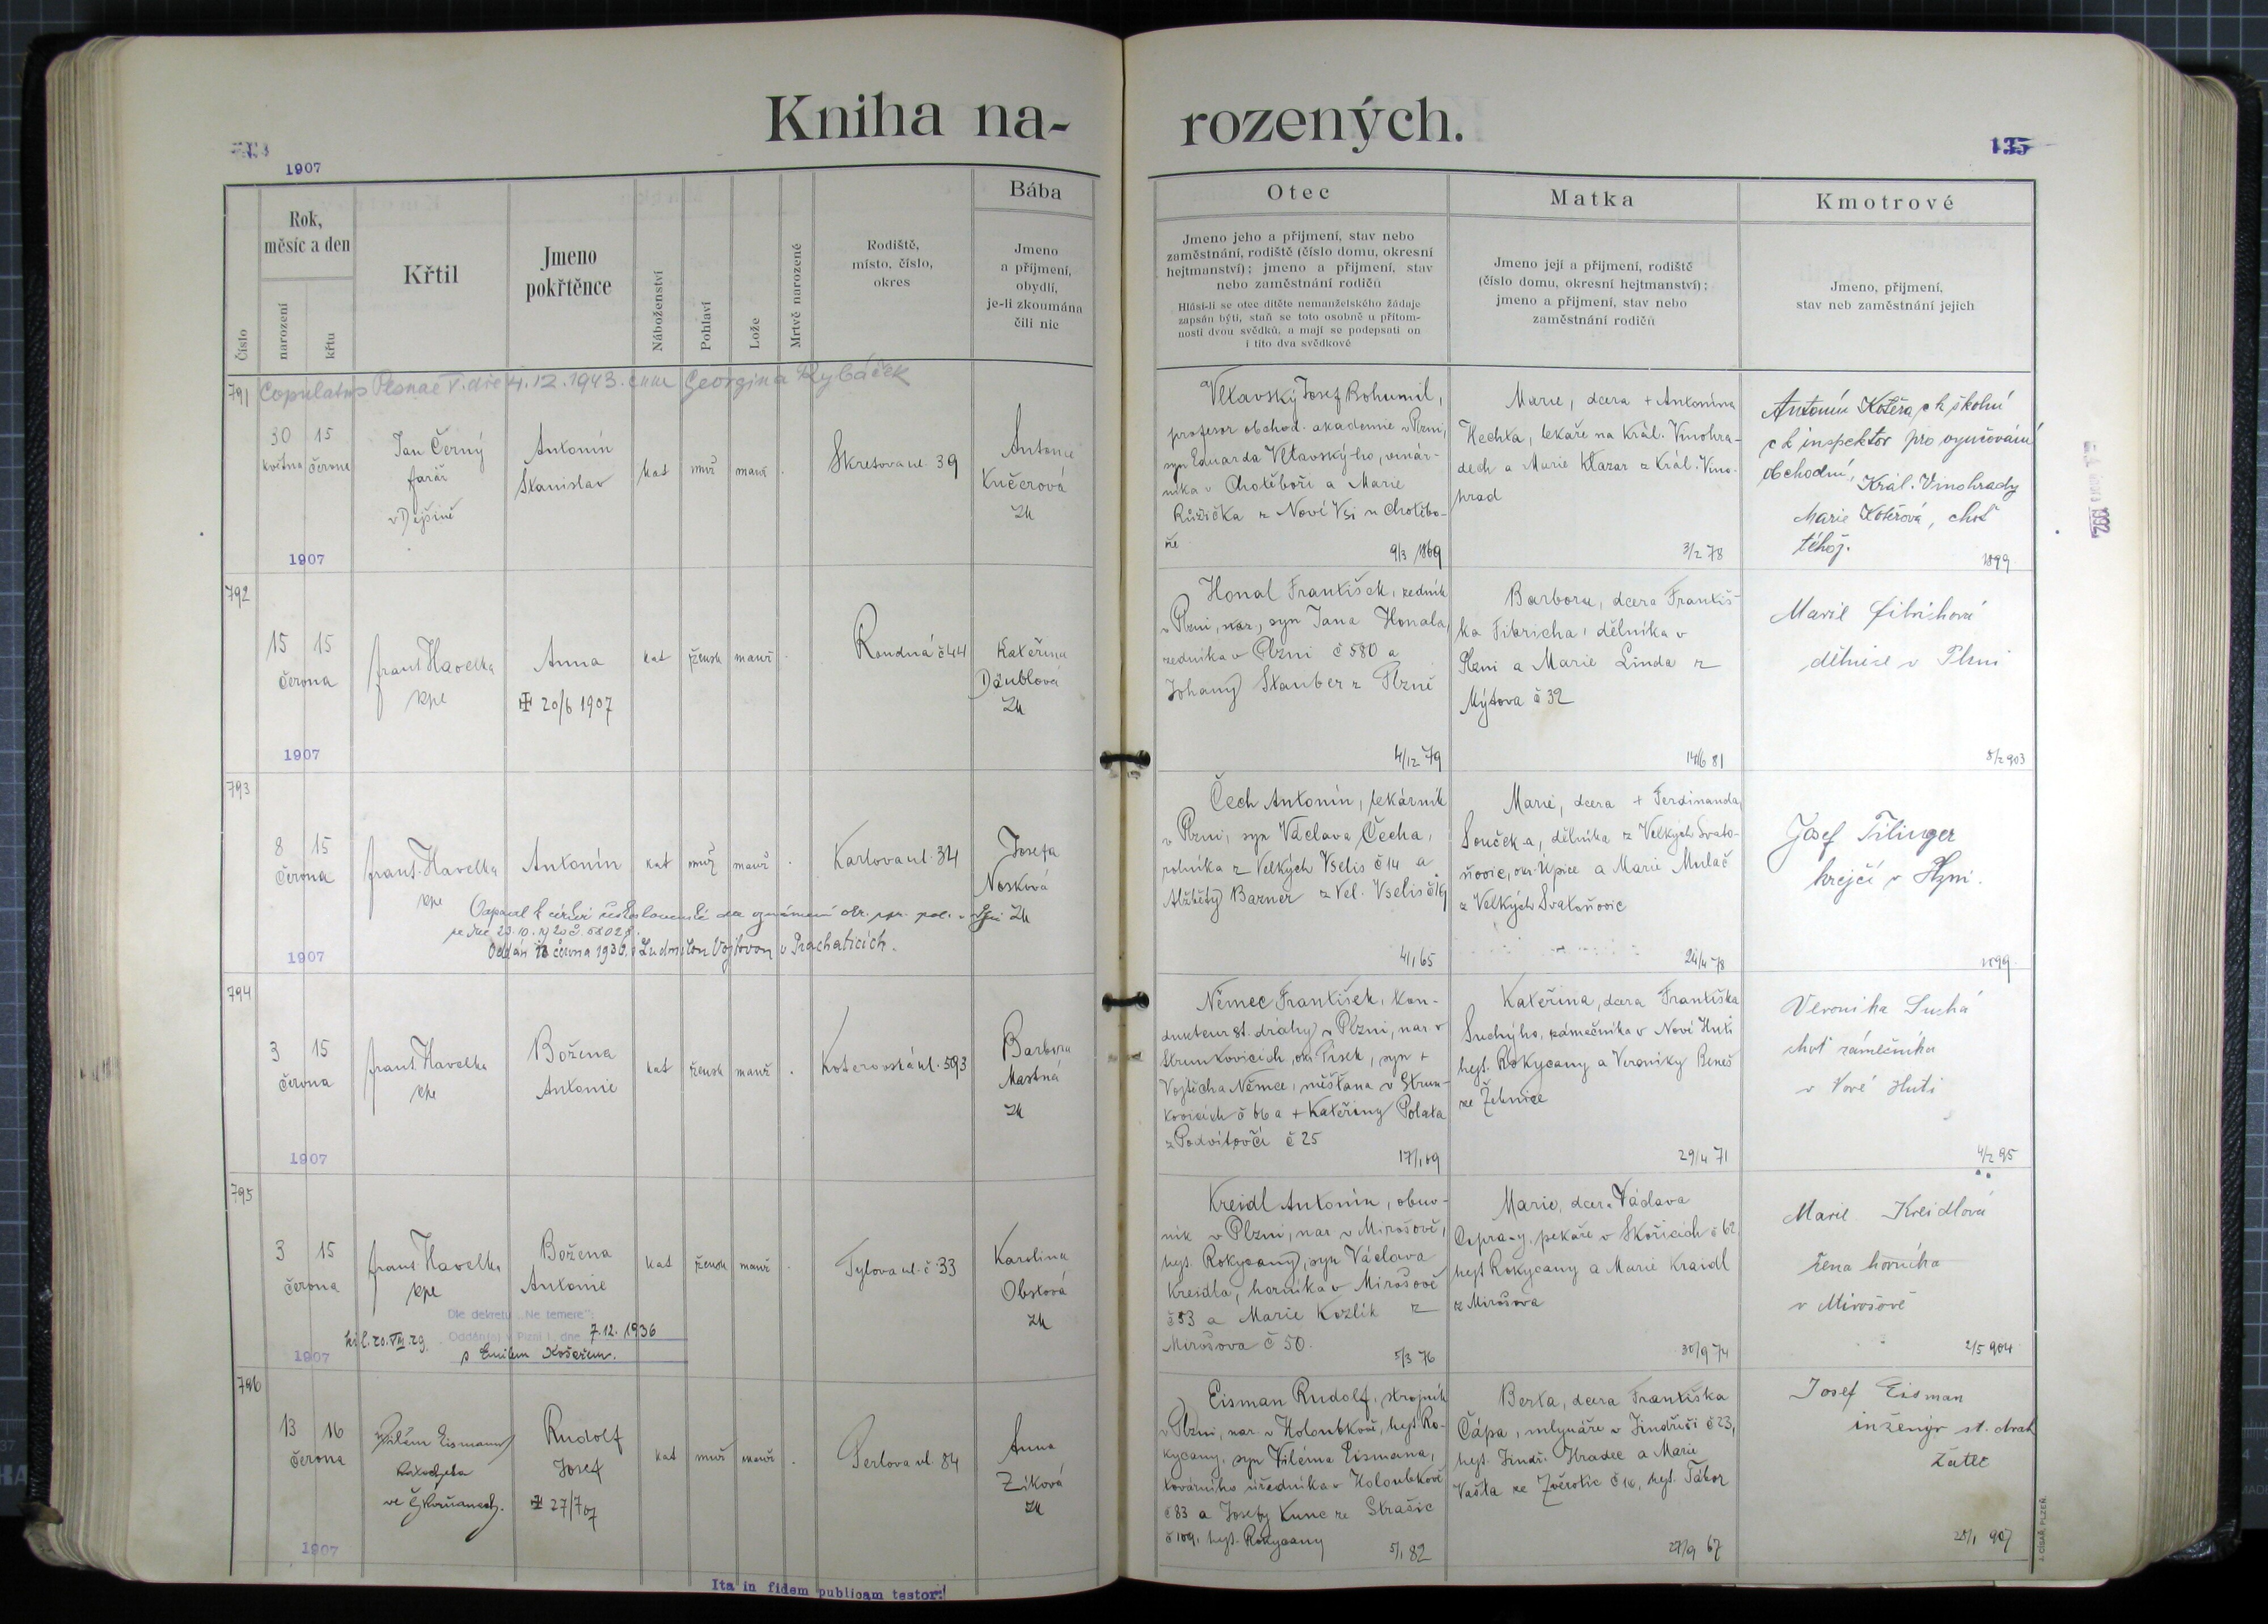 Kniha na-
rozených.
1907
135
Číslo
Rok,
měsíc a den
narození
křtu
Křtil
Jmeno
pokřtěnce
Náboženství
Pohlaví
Lože
Mrtvě narozené
Rodiště,
místo, číslo,
okres
Bába
Jmeno
a příjmení,
obydlí,
je-li zkoumána
čili nic
Otec
Jmeno jeho a přijmení, stav nebo
zaměstnání, rodiště (číslo domu, okresní
hejtmanství); jmeno a přijmení, stav
nebo zaměstnání rodičů
Hlásí-li se otec dítěte nemanželského žádaje
zapsán býti, staň se toto osobně u přítom-
nosti dvou svědků, a mají se podepsati on
i tito dva svědkové
Matka
Jmeno její a přijmení, rodiště
(číslo domu, okresní hejtmanství);
jmeno a přijmení, stav nebo
zaměstnání rodičů
Kmotrové
Jmeno, přijmení,
stav neb zaměstnání jejich
791
Copulatus Plsnae V. die 4.12.1943. cum Georgina Rybáček
30 15
května června
Jan Černý
farář
v Dejšině
Antonín
Stanislav
kat
muž
manž
.
Skretova ul. 39
Antonie
Kučerová
zk
1907
Vltavský Josef Bohumil,
profesor obchod. akademie v Plzni,
syn Eduarda Vltavský-ho, vinár-
níka v Chotěboři a Marie
Růžička z Nové Vsi u Chotěbo-
ře
9/3 1869
Marie, dcera + Antonína
Hechta, lékaře na Král. Vinohra-
dech a Marie Klazar z Král. Vino-
hrad
3/2 78
Antonín Kotěra, c k školní
c k inspektor pro vyučování
obchodní, Král. Vinohrady
Marie Kotěrová, choť
téhož.
1899
792
15 15
června
Frant. Havelka
kpl
Anna
20/6 1907
kat
žensk
manž
.
Roudná č 44
Kateřina
Däublová
zk
1907
Honal František, zedník
v Plzni, nar., syn Jana Honala,
zedníka v Plzni č 580 a
Johany Stauber z Plzně
4/12 79
Barbora, dcera Františ-
ka Fibricha, dělníka v
Plzni a Marie Linda z
Mýtova č 32
14/6 81
Marie Fibrichová
dělnice v Plzni
8/2 903
793
8 15
června
Frant. Havelka
kpl
Antonín
kat
muž
manž
.
Karlova ul. 34
Josefa
Nosková
zk
Oddán června 1930 s Ludmilou Vojtovou v Prachaticích.
1907
Čech Antonín, lekárník
v Plzni, syn Václava Čecha,
rolníka z Velkých Vselis č 14 a
Alžběty Barner z Vel. Vselis č 19
4/1 65
Marie, dcera + Ferdinanda
Souček-a, dělníka z Velkých Svato-
ňovic, okr. Úpice a Marie Mulač
z Velkých Svatoňovic
24/4 78
Josef Tilinger
krejčí v Plzni.
1899
794
3 15
června
Frant. Havelka
kpl
Božena
Antonie
kat
žensk
manž
.
Koterovská ul. 593
Barbora
Mastná
zk
1907
Němec František, kon-
dukteur st. dráhy v Plzni, nar. v
Strunkovicích, okr. Písek, syn +
Vojtěcha Němce, měšťana v Strun-
kovicích č 66 a + Kateřiny Polata
z Podvitovčí č 25
Kateřina, dcera Františka
Suchýho, zámečníka v Nové Huti
hejt. Rokycany a Veroniky Beneš
ze Žehnice
29/4 71
Veronika Suchá
choť zámečníka
v Nové Huti
4/2 95
795
3 15
června
Frant. Havelka
kpl
Božena
Antonie
kat
žensk
manž
.
Tylova ul. č 33
Karolina
Obstová
zk
Dle dekretu „Ne temere":
Oddán(a) v Plzni I., dne 7.12. 1936
s Emilem Košařem.
1907
Kreidl Antonín, obuv-
ník v Plzni, nar. v Mirošově,
hejt. Rokycany, syn Václava
Kreidla, horníka v Mirošově
č 53 a Marie Kozlík z
Mirošova č 50.
5/3 76
Marie, dcera Václava
Cepra-y, pekaře v Skořicích č 62,
hejt Rokycany a Marie Kraidl
z Mirošova
30/9 74
Marie Kreidlová
žena horníka
v Mirošově
2/5 904
796
13 16
června
Vilém Eismann
ve Čkoňanech.
Rudolf
Josef
27/7 07
kat
muž
manž
.
Perlova ul. 84
Anna
Zíková
zk
1907
Eisman Rudolf, strojník
v Plzni, nar. v Holoubkově, hejt. Ro-
kycany, syn Viléma Eismana,
továrního úředníka v Holoubkově
č 83 a Josefy Kunc ze Strašic
č 109, hejt. Rokycany
5/1 82
Berta, dcera Františka
Čápa, mlynáře v Jindřiši č 23,
hejt. Jindř. Hradec a Marie
Vašta ze Zvěrotic č 14, hejt. Tábor
27/9 67
Josef Eisman
inženýr st. drah
Žatec
28/1 907
Ita in fidem publicam testor:
J. CÍSAŘ, PLZEŇ.